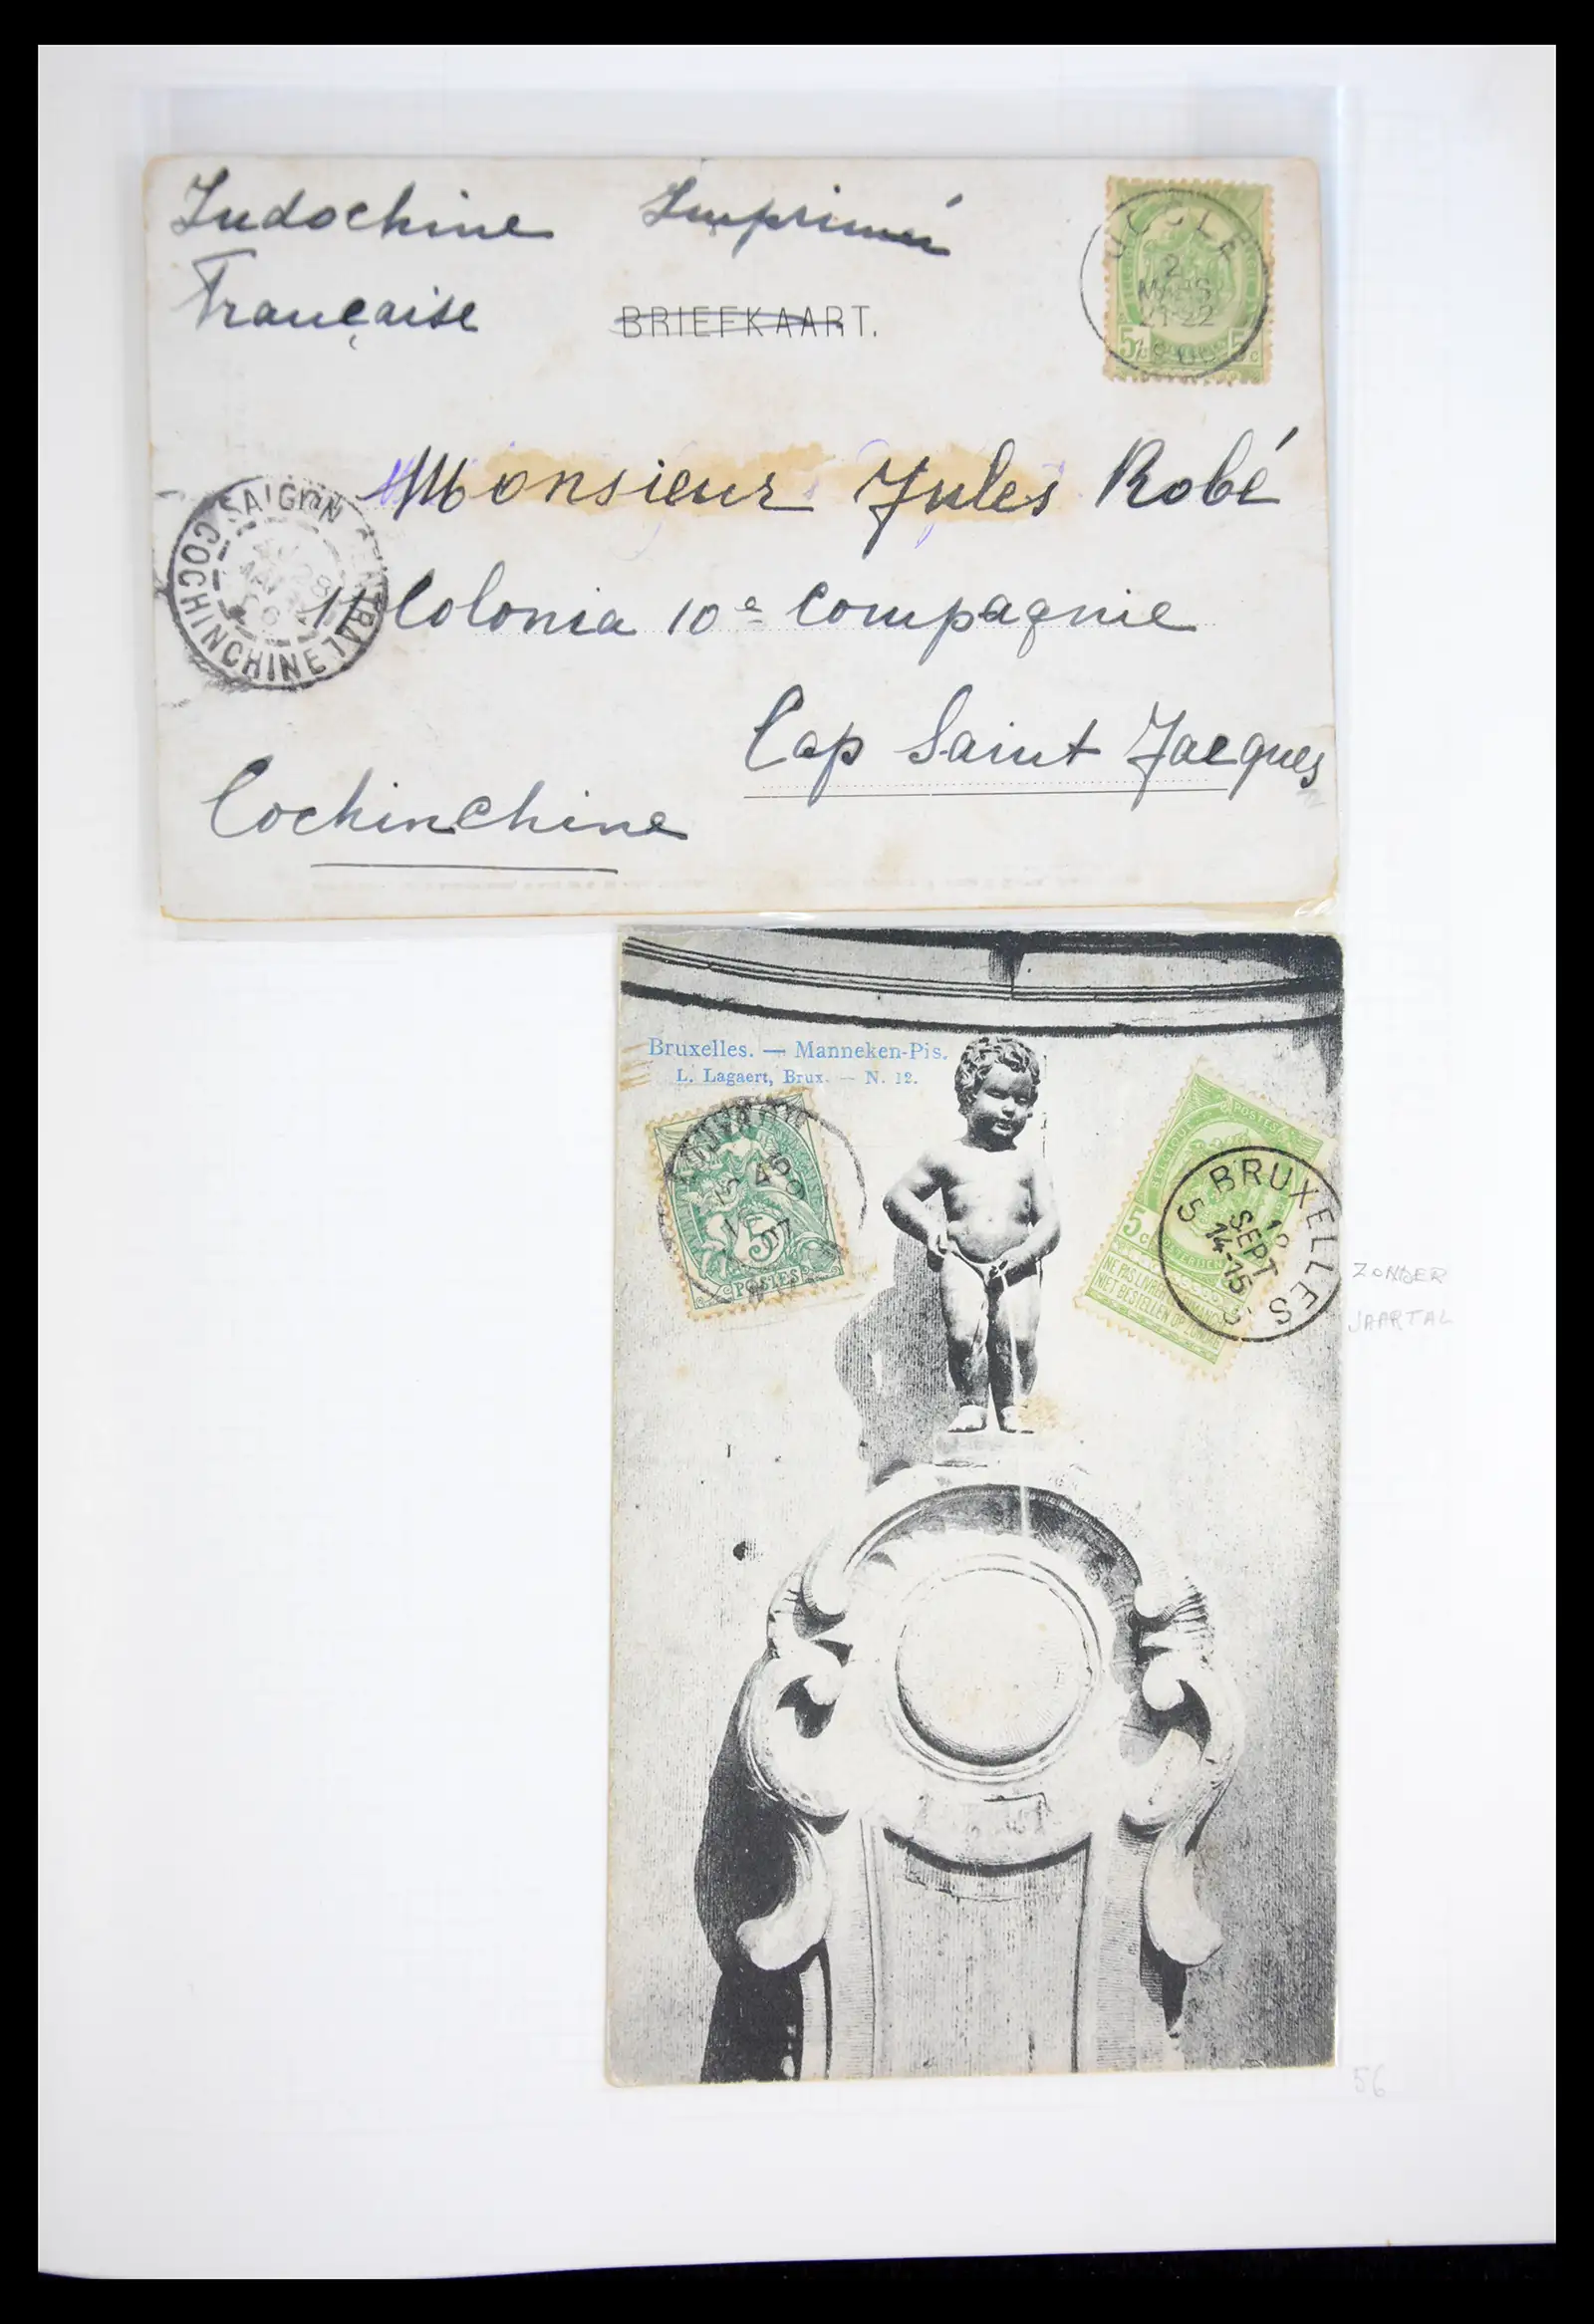 Indochine
Imprimé
Française
BRIEFKAART.
UCCLE
2
MARS
21-22
5c 5c
Monsieur Jules Robé
SAIGON CENTRAL
COCHINCHINE
11 Colonia 10e Compagnie
Cap Saint Jacques
Cochinchine
Bruxelles. — Manneken-Pis.
L. Lagaert, Brux. — N. 12.
5
POSTES
BELGIQUE POSTES
5c
NE PAS LIVRER
NIET BESTELLEN OP ZONDAG
BRUXELLES 5
10
SEPT
14-15
ZONDER
JAARTAL
56